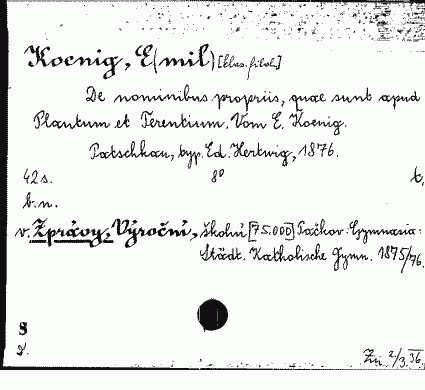 Koenig, E(mil) [klas. filol.]
De nominibus propriis, quae sunt apud
Plautum et Terentium. Vom E. Koenig.
Patschkau, typ. Ed. Hertwig, 1876.
42 s. 8° t.
b.n.
v. Zprávy, Výroční, školní [75.000] Pačkov: Gymnasia:
Städt. Katholische Gymn. 1875/76.
S
Zü 2/3.36.